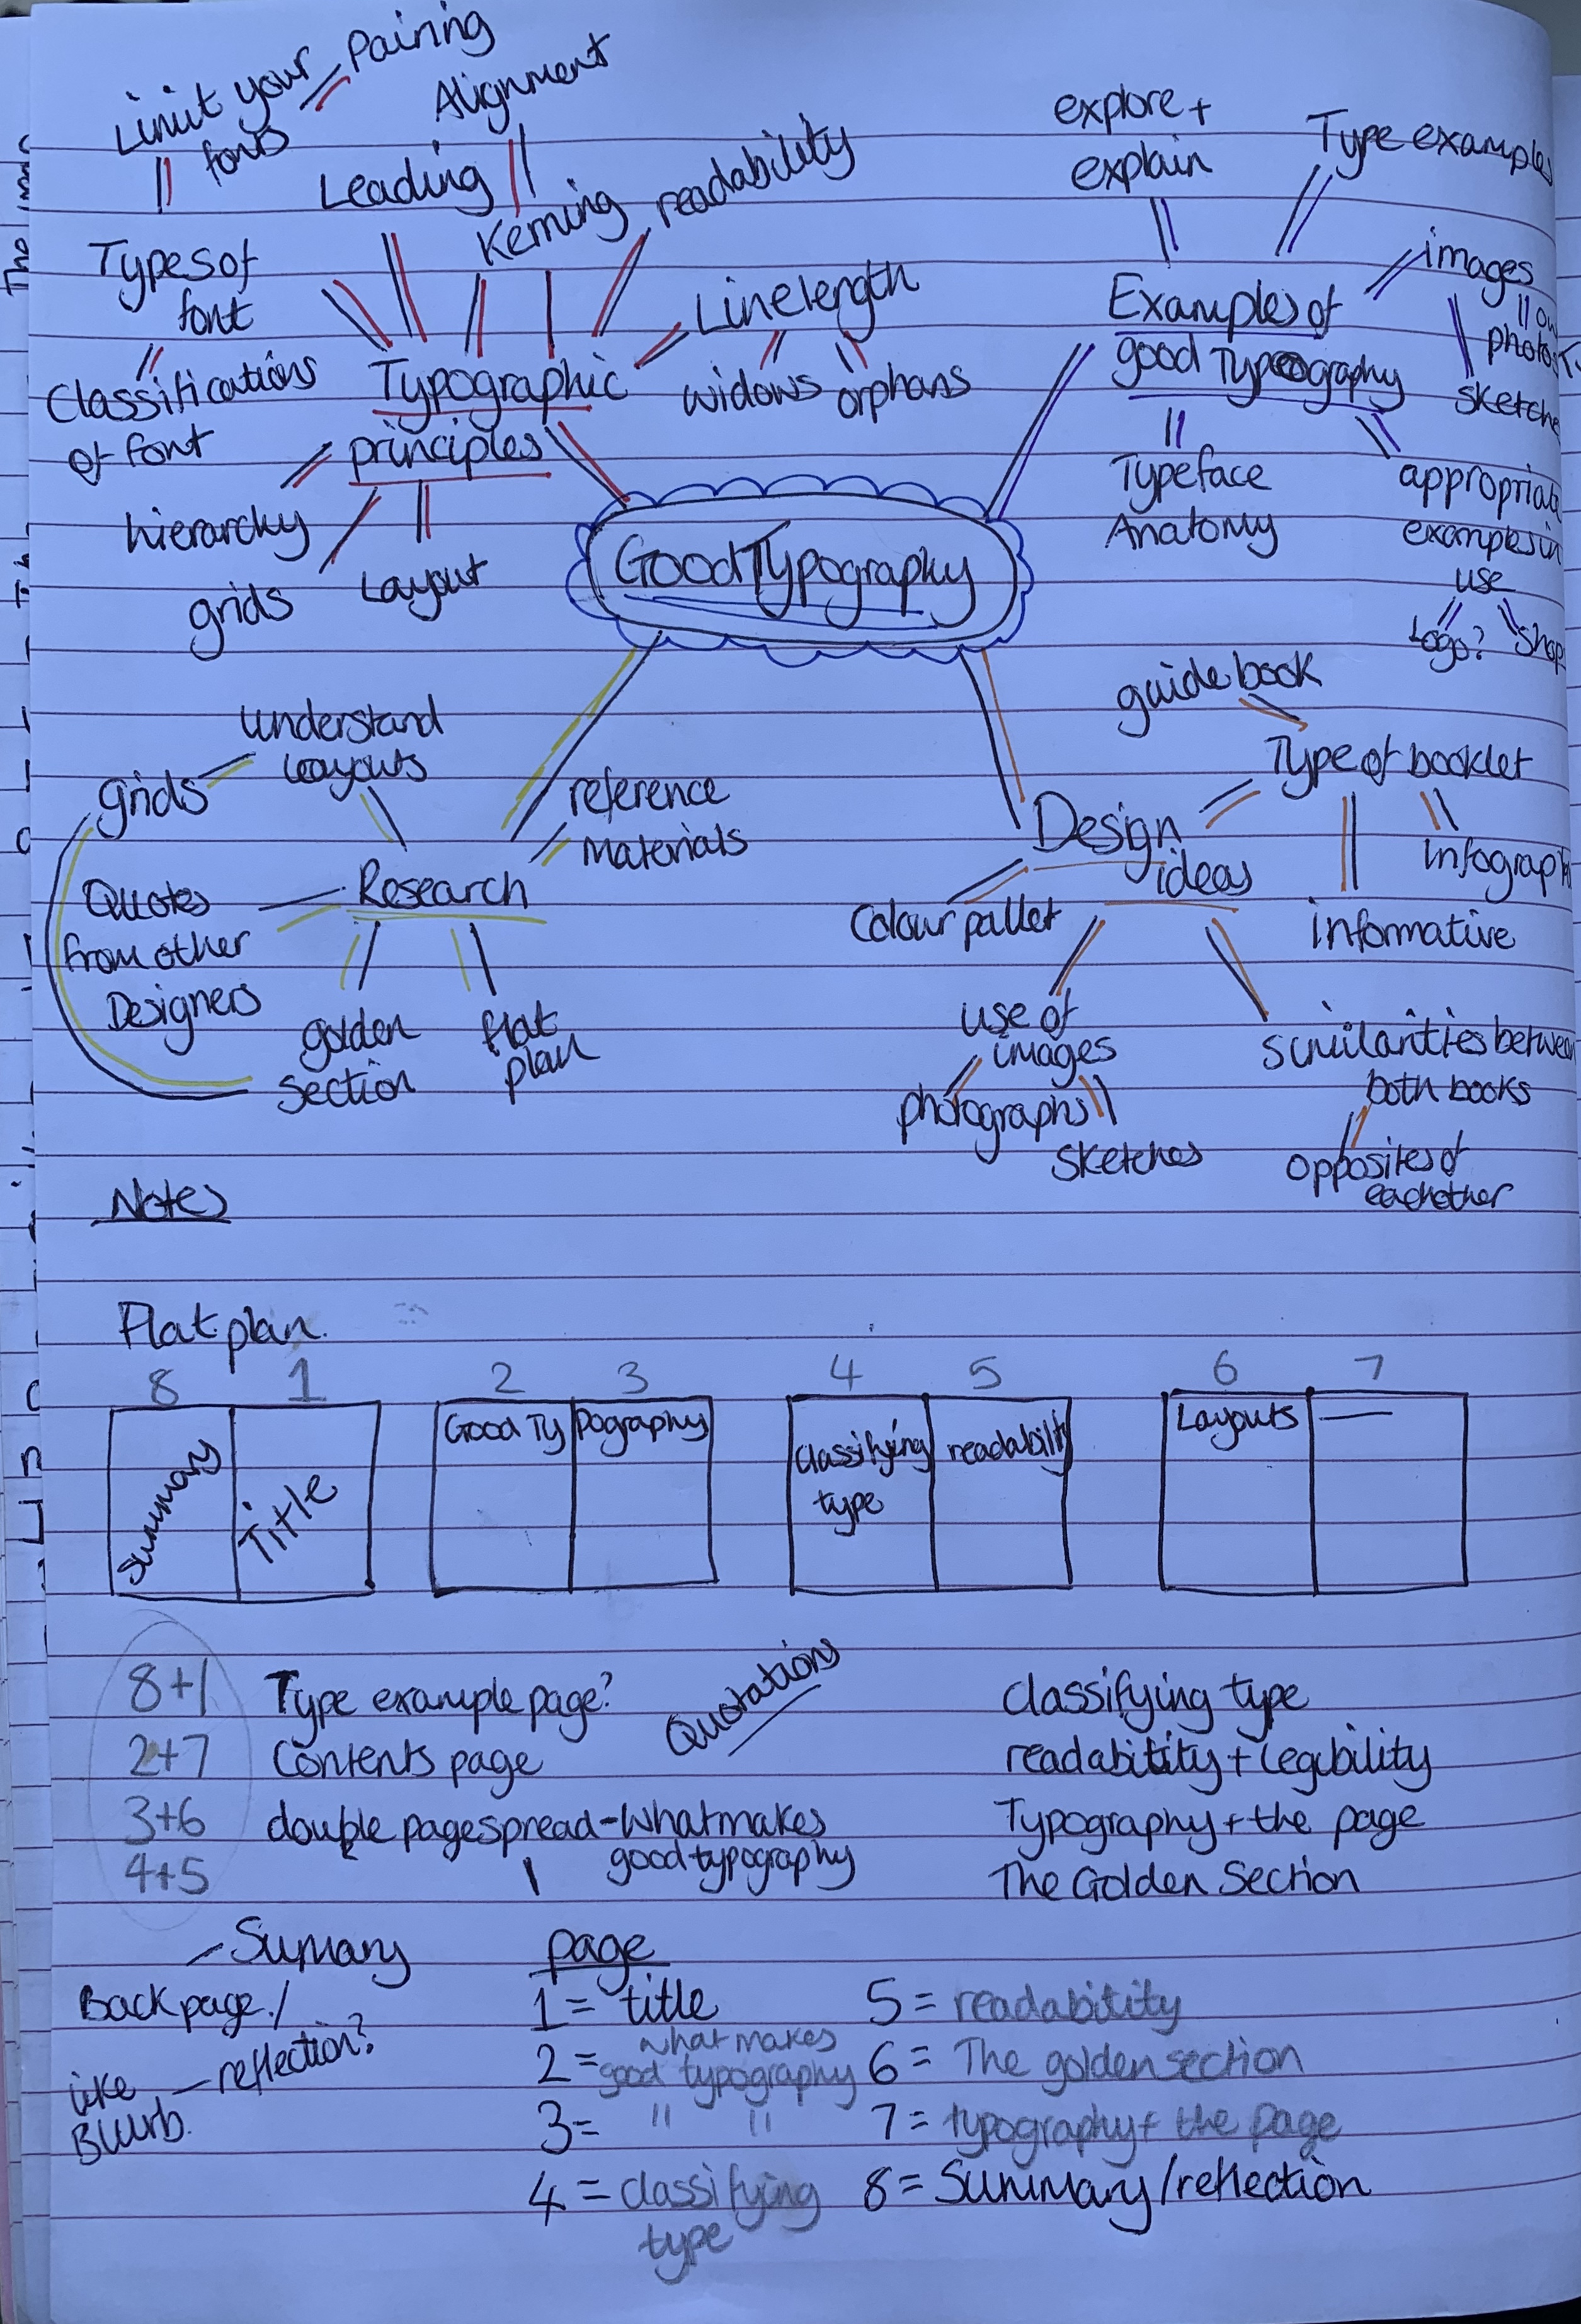 Limit your
fonts
Pairing
Alignment
Leading
Kerning
readability
Types of
font
Classifications
of font
Typographic
principles
Line length
widows
orphans
hierarchy
grids
Layout
explore +
explain
Type examples
images
photos
sketche
Examples of
good Typeography
Typeface
Anatomy
appropriate
examples in
use
Logo?
Shap
Good Typography
understand
layouts
grids
reference
Materials
Research
Quotes
from other
Designers
golden
section
flat
plan
guide book
Type of booklet
Design
ideas
infograph
informative
Colour pallet
use of
images
photographs
sketches
similarities between
both books
opposites of
eachother
Notes
Flat plan.
8 1 2 3 4 5 6 7
Summary
Title
Good Ty pography
Classifying
type
readabilit
Layouts
8+1 Type example page?
Quotations
classifying type
2+7 Contents page
readabitity + legibility
3+6 double page spread - What makes
good typography
Typography + the page
4+5
The Golden Section
- Sumary
Back page /
- reflection?
like
Blurb.
page
1 = title
2 = what makes
good typography
3 = " "
4 = classifying
type
5 = readabitity
6 = The golden section
7 = typography + the page
8 = Summary/reflection